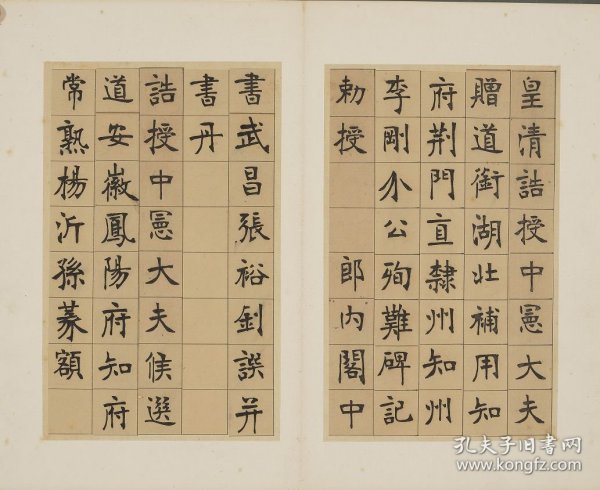 皇清誥授中憲大夫
贈道銜湖北補用知
府荆門直隸州知州
李剛介公殉難碑記
勅授 郎内閣中
書武昌張裕釗譔并
書丹
誥授中憲大夫候選
道安徽鳳陽府知府
常熟楊沂孫篆額
孔夫子旧书网
www.kongfz.com